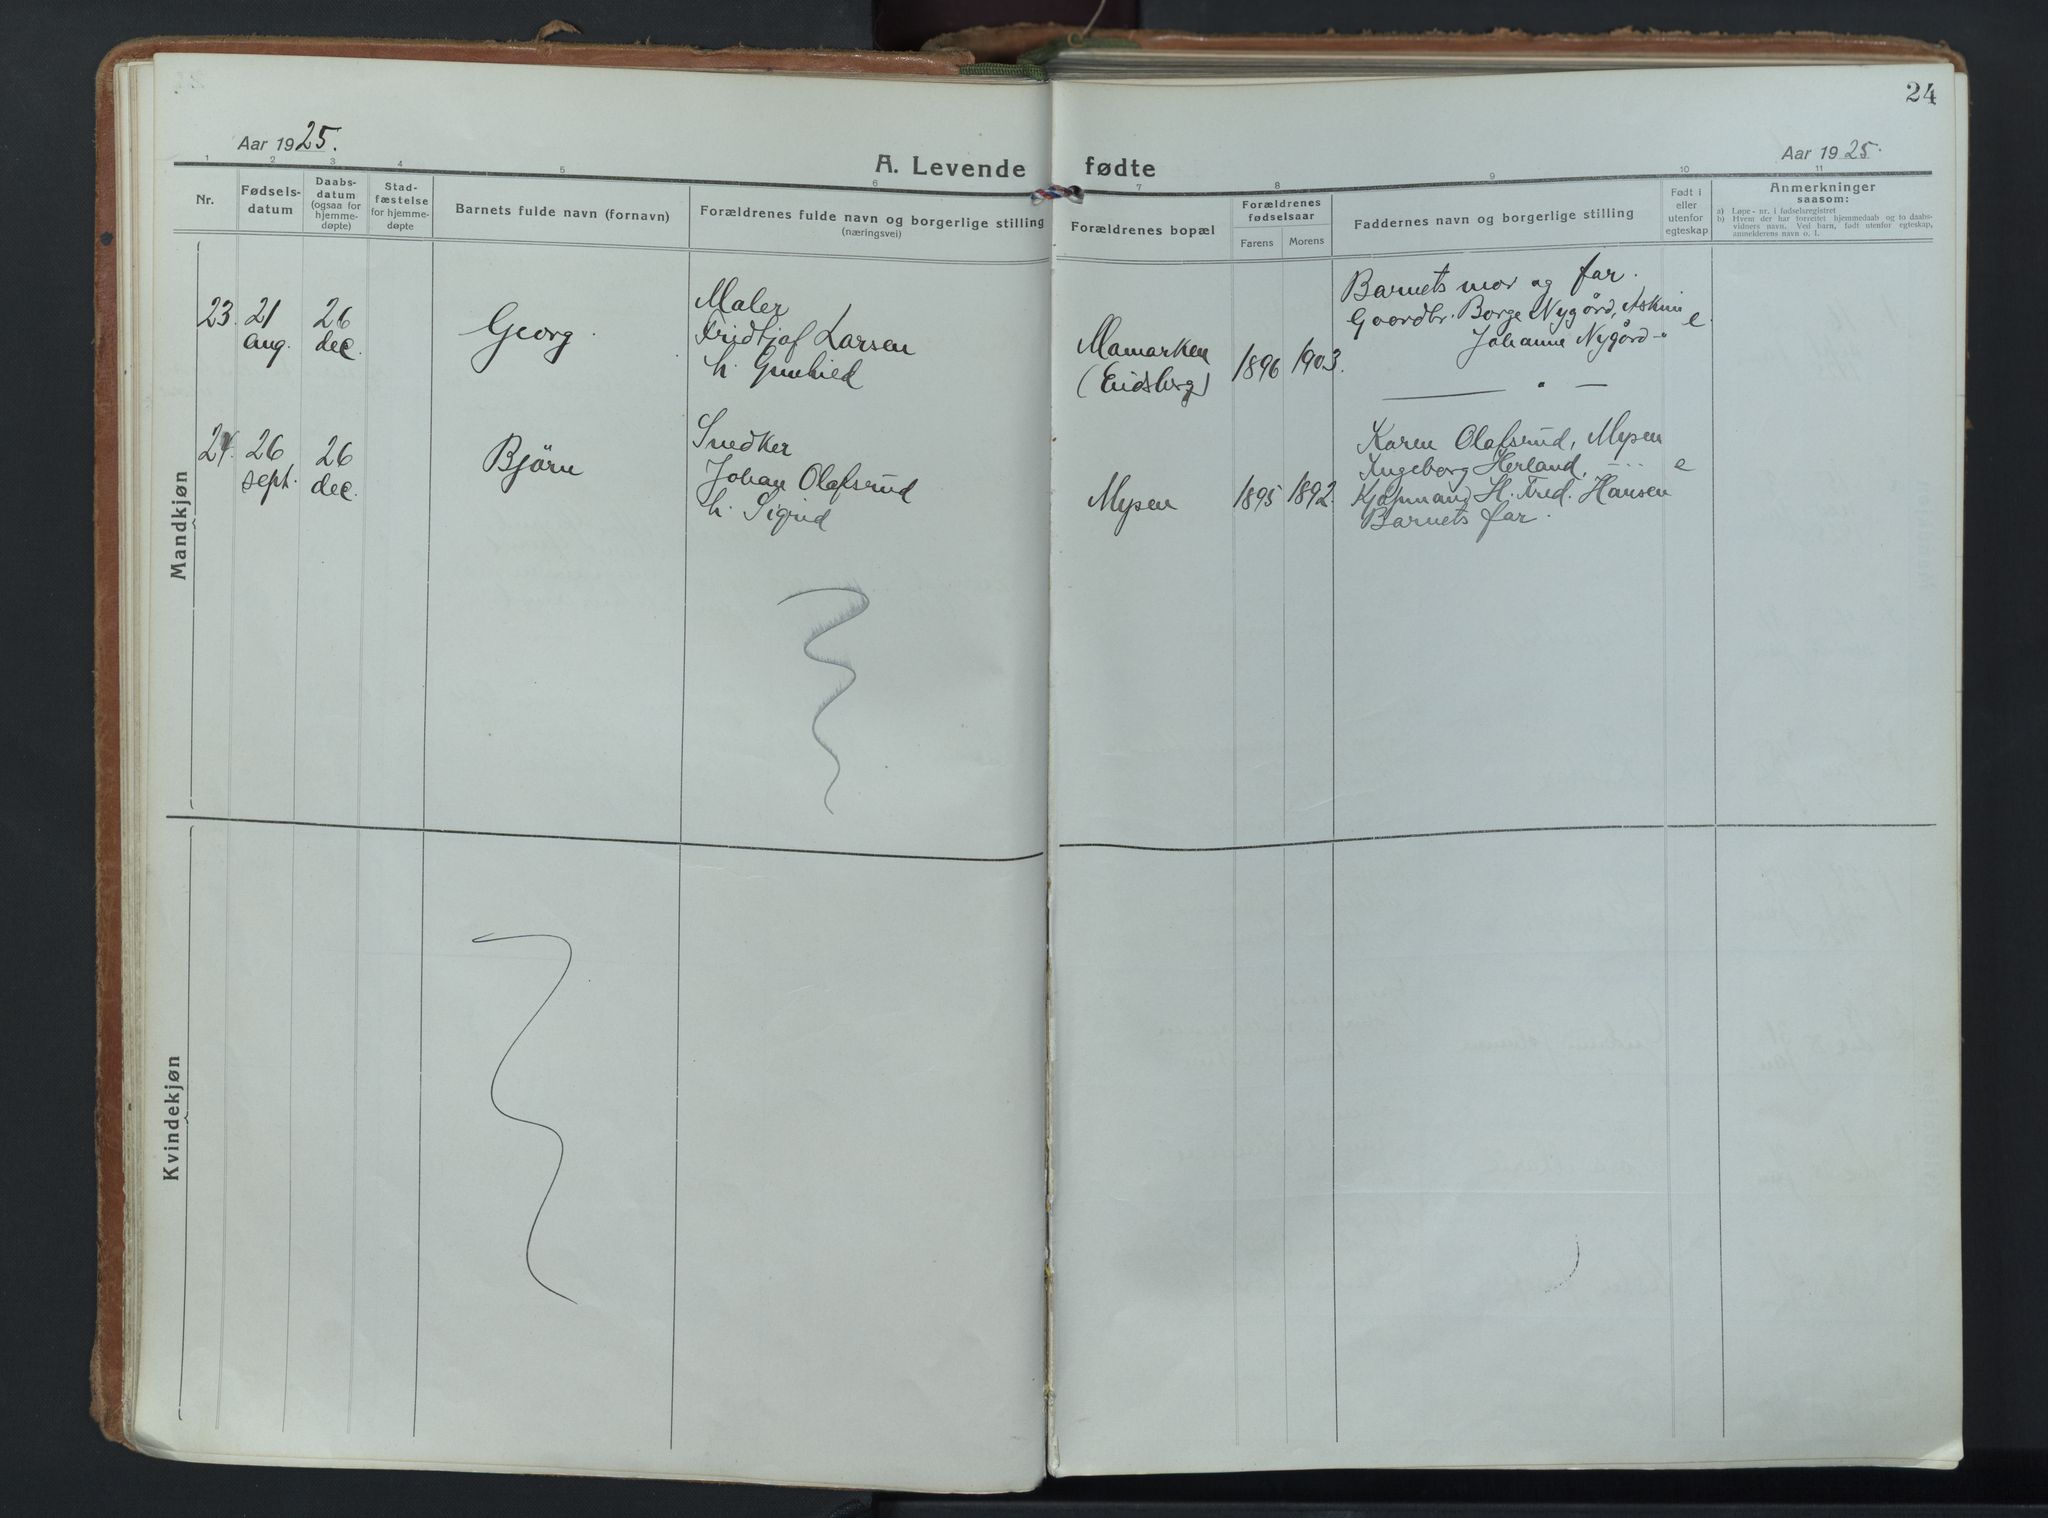 24
Aar 1925.
Aar 1925.
A. Levende fødte
1 2 3 4 5 6 7 8 9 10 11
Nr.
Fødsels-
datum
Daabs-
datum
(ogsaa for
hjemme-
døpte)
Stad-
fæstelse
for hjemme-
døpte
Barnets fulde navn (fornavn)
Forældrenes fulde navn og borgerlige stilling
(næringsvei)
Forældrenes bopæl
Forældrenes
fødselsaar
Farens
Morens
Faddernes navn og borgerlige stilling
Født i
eller
utenfor
egteskap
Anmerkninger
saasom:
a) Løpe-nr. i fødselsregistret
b) Hvem der har forrettet hjemmedaab og to daabs-
vidners navn. Ved barn, født utenfor egteskap,
anmelderens navn o. l.
Mandkjøn
23. 21
aug.
26
dec.
Georg.
Maler
Fridtjof Larsen
h. Gunhild
Mamarken
(Eidsberg)
1896
1903.
Barnets mor og far.
Gaardbr. Borge Nygård, Askim
Johanne Nygård - "
— " —
e.
24. 26
sept.
26
dec.
Bjørn
Snedker
Johan Olafsrud
h. Sigrid
Mysen
1895
1892.
Karen Olafsrud, Mysen
Ingeborg Herland,
Kjøpmand H. Fred. Hansen
Barnets far.
e
Kvindekjøn